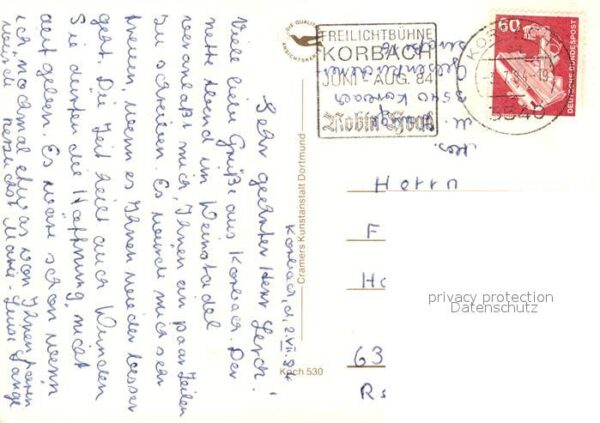 Korbach, d. 2.VII.84
Sehr geehrter Herr Lerch!
Viele liebe Grüße aus Korbach. Der
nette Abend im Weinstadel
veranlaßt mich, Ihnen ein paar Zeilen
zu schreiben. Es würde mich sehr
freuen, wenn es Ihnen wieder besser
geht. Die Zeit heilt auch Wunden
Sie dürfen die Hoffnung nicht
aufgeben. Es wäre schön wenn
ich nochmal etwas von Ihnen
Marie-Luise Lange
DIE QUALITÄTS
ANSICHTSKARTE
FREILICHTBÜHNE
KORBACH
JUNI - AUG. 84
Robin Hood
KORBACH
3540
60
DEUTSCHE BUNDESPOST
3540 Korbach
Cramers Kunstanstalt Dortmund
Koch 530
Herrn
F
Ha
63
privacy protection
Datenschutz